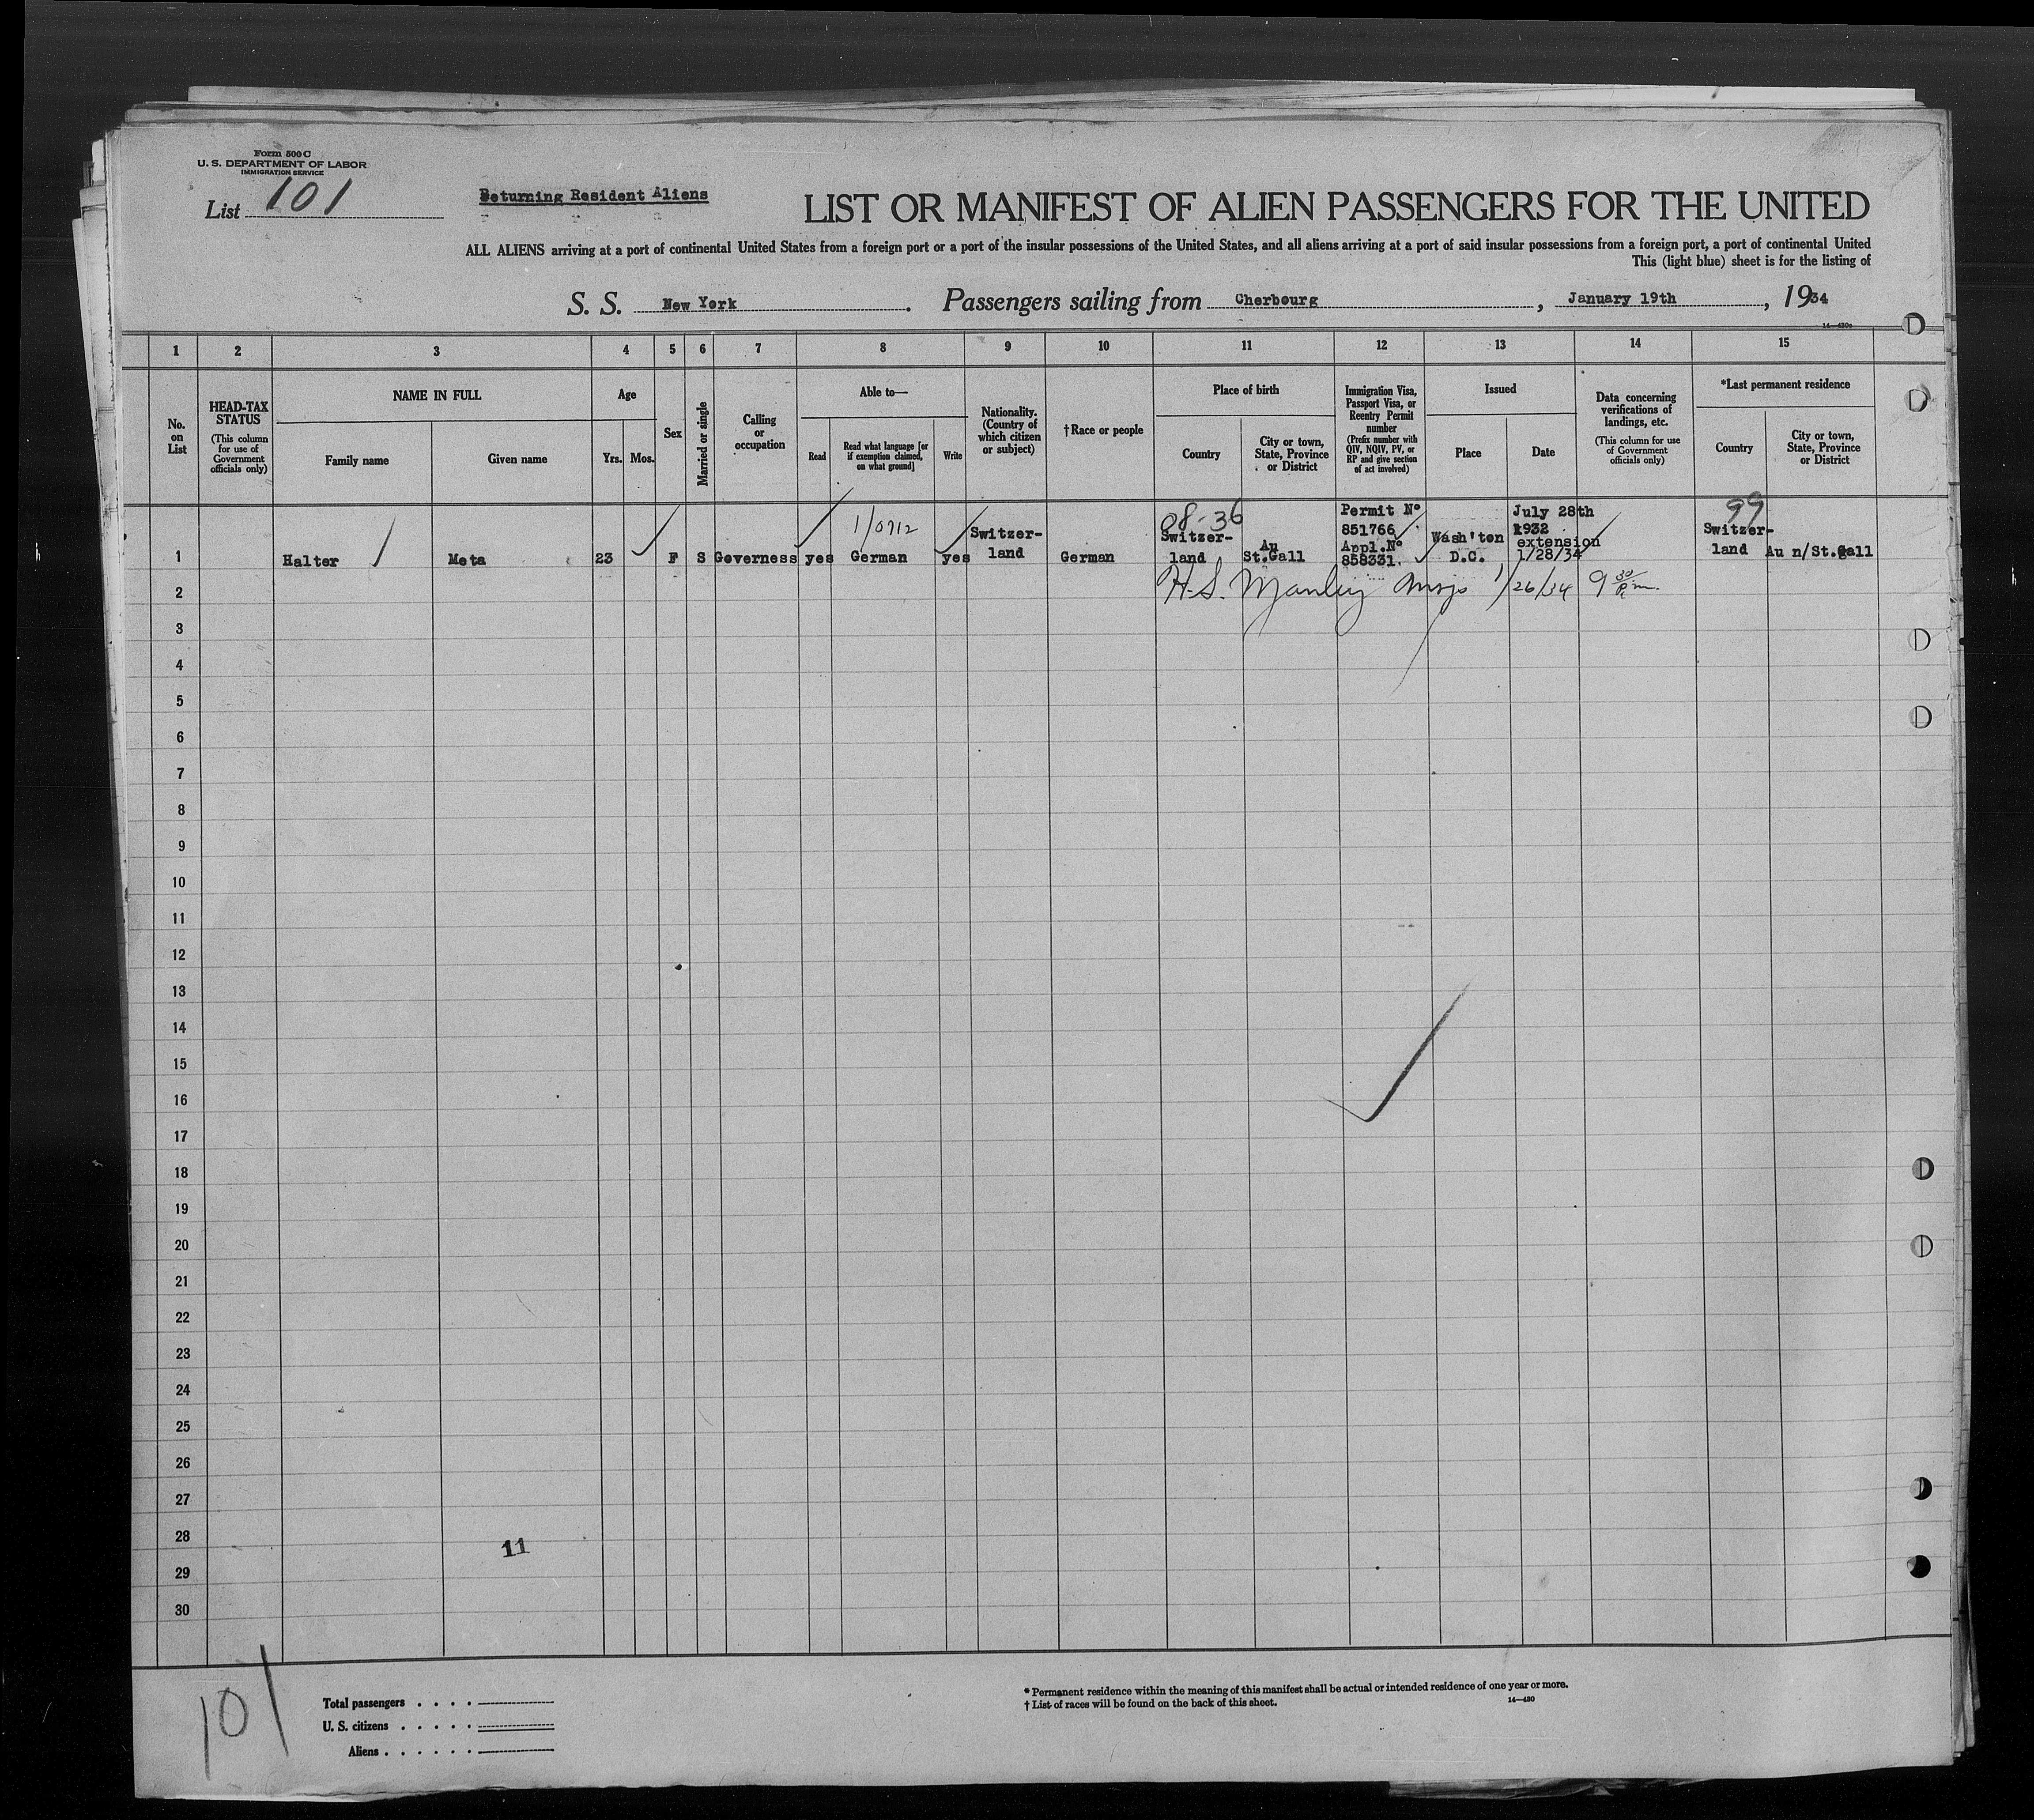 Form 500 C
U. S. DEPARTMENT OF LABOR
IMMIGRATION SERVICE
List 101
Returning Resident Aliens
LIST OR MANIFEST OF ALIEN PASSENGERS FOR THE UNITED
ALL ALIENS arriving at a port of continental United States from a foreign port or a port of the insular possessions of the United States, and all aliens arriving at a port of said insular possessions from a foreign port, a port of continental United
This (light blue) sheet is for the listing of
S. S. New York. Passengers sailing from Cherbourg, January 19th, 1934
14—430a
1 2 3 4 5 6 7 8 9 10 11 12 13 14 15
No.
on
List
HEAD-TAX
STATUS
(This column
for use of
Government
officials only)
NAME IN FULL
Family name Given name
Age
Yrs. Mos.
Sex
Married or single
Calling
or
occupation
Able to—
Read
Read what language [or
if exemption claimed,
on what ground]
Write
Nationality.
(Country of
which citizen
or subject)
†Race or people
Place of birth
Country
City or town,
State, Province
or District
Immigration Visa,
Passport Visa, or
Reentry Permit
number
(Prefix number with
QIV, NQIV, PV, or
RP and give section
of act involved)
Issued
Place Date
Data concerning
verifications of
landings, etc.
(This column for use
of Government
officials only)
*Last permanent residence
Country
City or town,
State, Province
or District
1 Halter Meta 23 F S Governess yes German yes
1/0712
Switzer-
land
German
08-36
Switzer-
land
Au
St.Gall
Permit No
851766
Appl.No
858331.
Wash'ton
D.C.
July 28th
1932
extension
1/28/34
99
Switzer-
land
Au n/St.gall
2 H.S. Manley 1/26/34 9 30 P.m.
3
4
5
6
7
8
9
10
11
12
13
14
15
16
17
18
19
20
21
22
23
24
25
26
27
28
11
29
30
101
Total passengers . . . .
U. S. citizens . . . . .
Aliens . . . . . .
* Permanent residence within the meaning of this manifest shall be actual or intended residence of one year or more.
† List of races will be found on the back of this sheet.
14—430